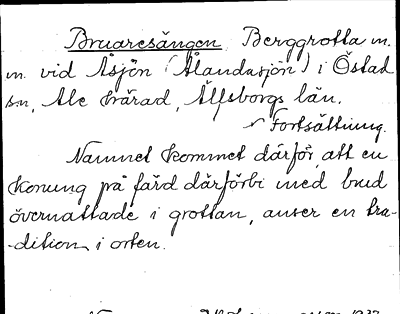 Bruaresängen, Berggrotta m.
m. vid Åsjön (Ålandasjön) i Östad
sn, Ale härad, Älfsborgs län.
Fortsättning.
Namnet kommet därför, att en
konung på färd därförbi med brud
övernattade i grottan, anser en tra-
-dition i orten.